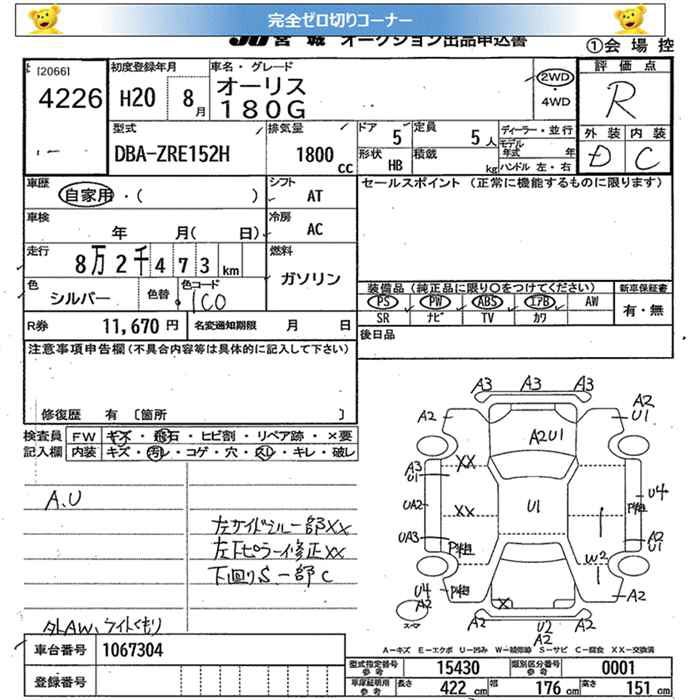 完全ゼロ切りコーナー
JU 宮城 オークション出品申込書
①会場控
[2066]
4226
初度登録年月
H20 8月
車名・グレード
オーリス
180G
2WD
・4WD
評価点
R
外装 内装
D C
型式
DBA-ZRE152H
排気量
1800 cc
ドア 5
定員 5人
形状 HB
積載 kg
ディーラー・並行
モデル年式 年
ハンドル 左・右
車歴
自家用・( )
シフト
AT
セールスポイント (正常に機能するものに限ります)
車検
年 月( 日)
冷房
AC
走行
8万2千473km
燃料
ガソリン
色
シルバー
色替
色コード
1C0
装備品(純正品に限り○をつけてください)
新車保証書
PS PW ABS エアB AW
有・無
SR ナビ TV カワ
R券 11,670円
名変通知期限 月 日
後日品
注意事項申告欄(不具合内容等は具体的に記入して下さい)
修復歴 有 〔箇所 〕
検査員記入欄
FW キズ・飛石・ヒビ割・リペア跡・×要
内装 キズ・汚レ・コゲ・穴・スレ・キレ・破レ
A,U
左サイドシル一部XX
左下ピラー修正XX
下回りS一部C
外AW、ライトくもり
A3 A3 A3
A2
A2
U1
A2U1
XX
A3
U1
XX
UA2
U1
U4
UA3
A2
U1
W2
U4
A2
X
A2
スペア
U2
A2
A-キズ E-エクボ U-凹み W-補修跡 S-サビ C-腐食 XX-交換済
車台番号 1067304
登録番号
型式指定番号 参考 15430
類別区分番号 参考 0001
車庫証明用 参考
長さ 422cm
幅 176cm
高さ 151cm